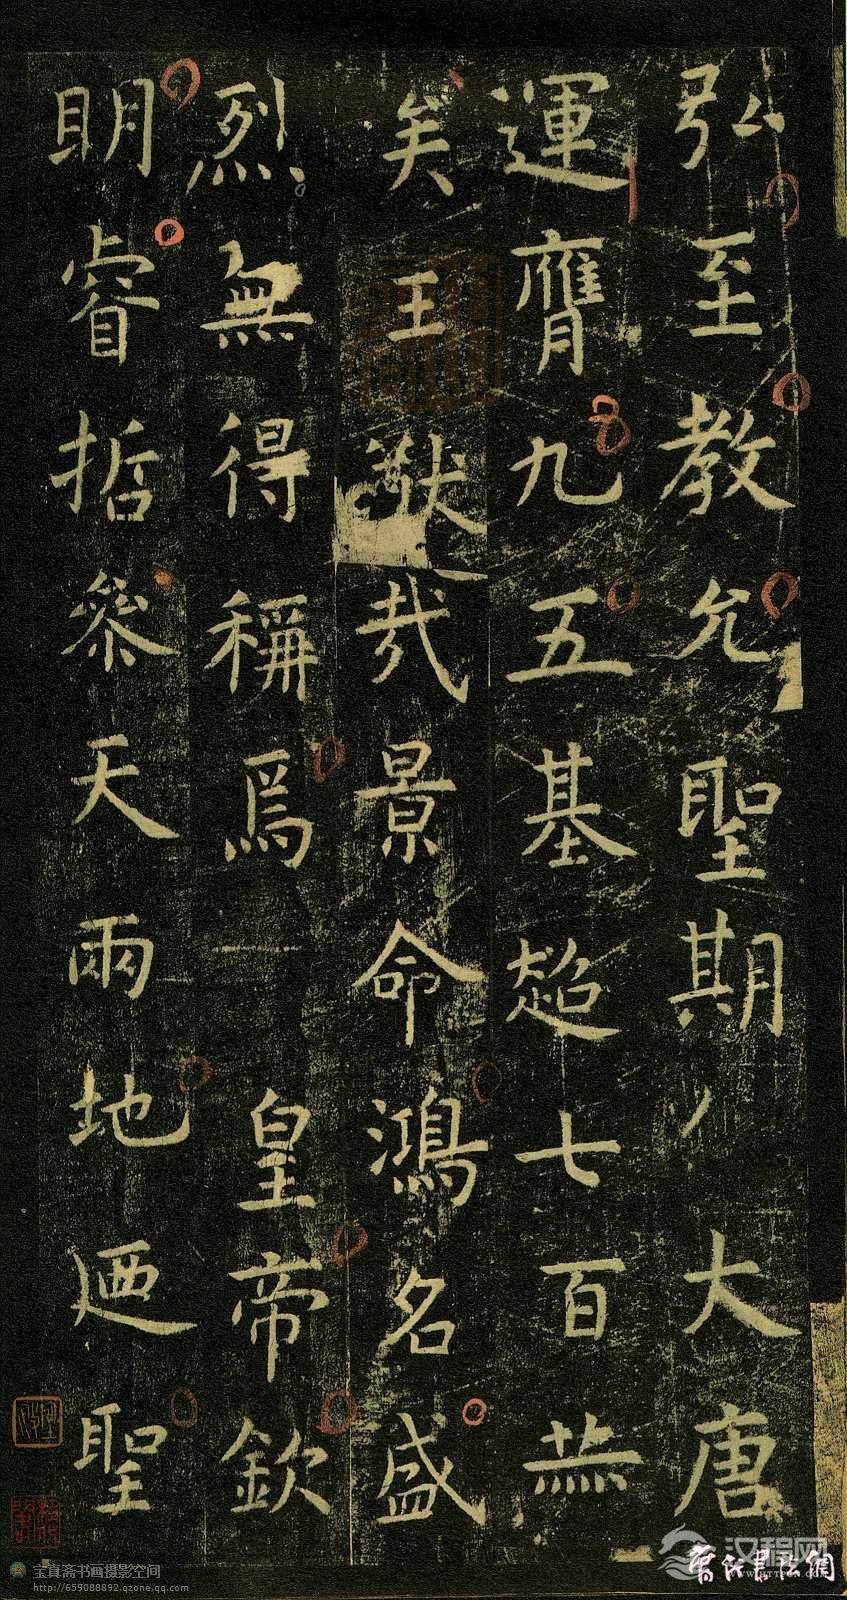 弘至教允聖期大唐
運膺九五基超七百赫
矣王猷哉景命鴻名盛
烈無得稱焉皇帝欽
明睿哲參天兩地迺聖
宝真斋书画摄影空间
http://659088892.qzone.qq.com
汉程网
WWW.HTTPCN.COM